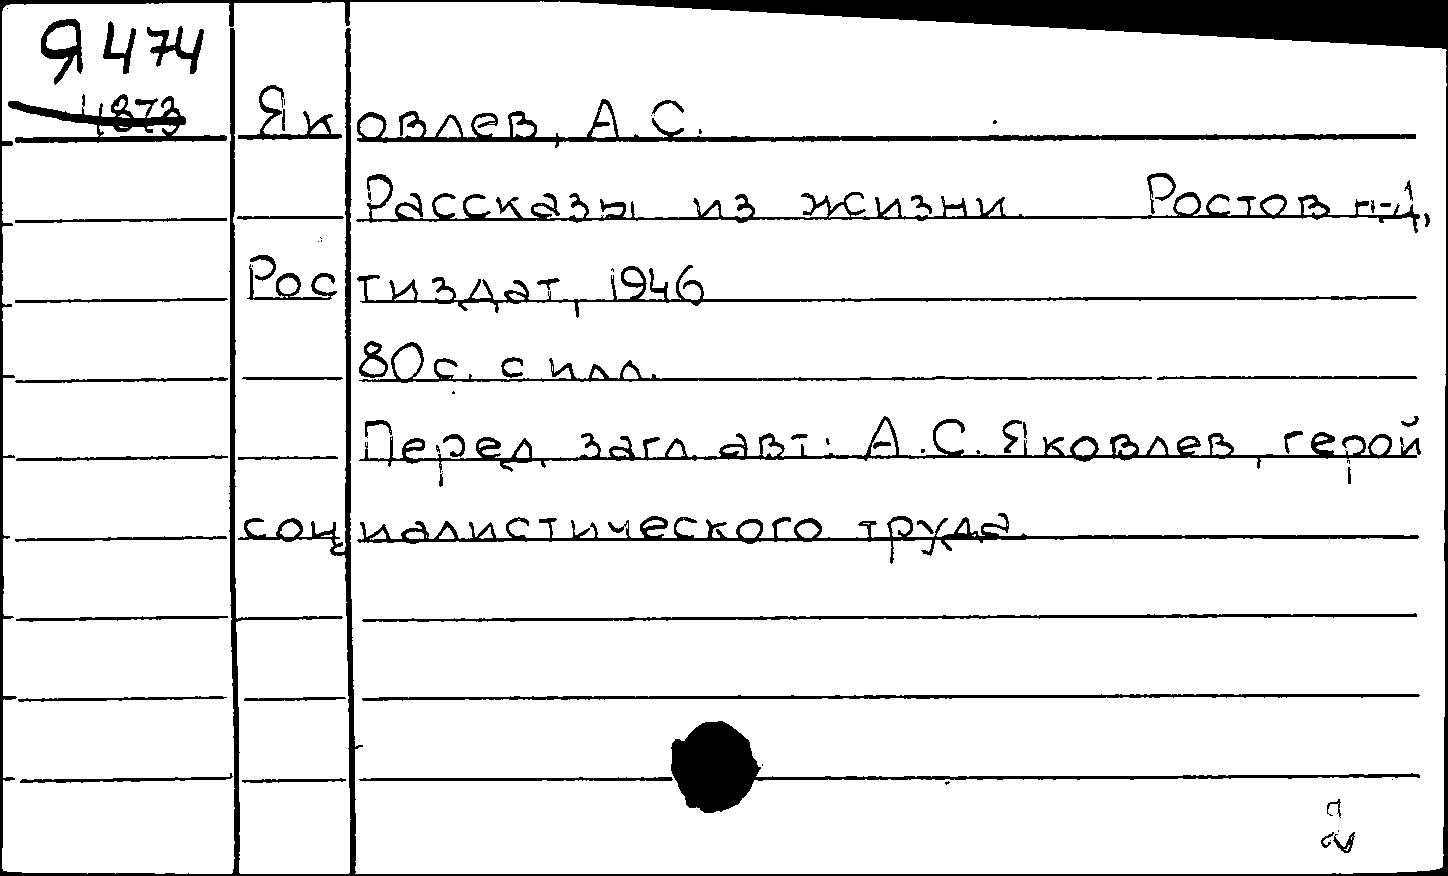 Я 474
4873
Яковлев, А.С.
Рассказы из жизни. Ростов н-Д,
Ростиздат, 1946
80с. с илл.
Перед загл. авт.: А.С. Яковлев, герой
социалистического труда